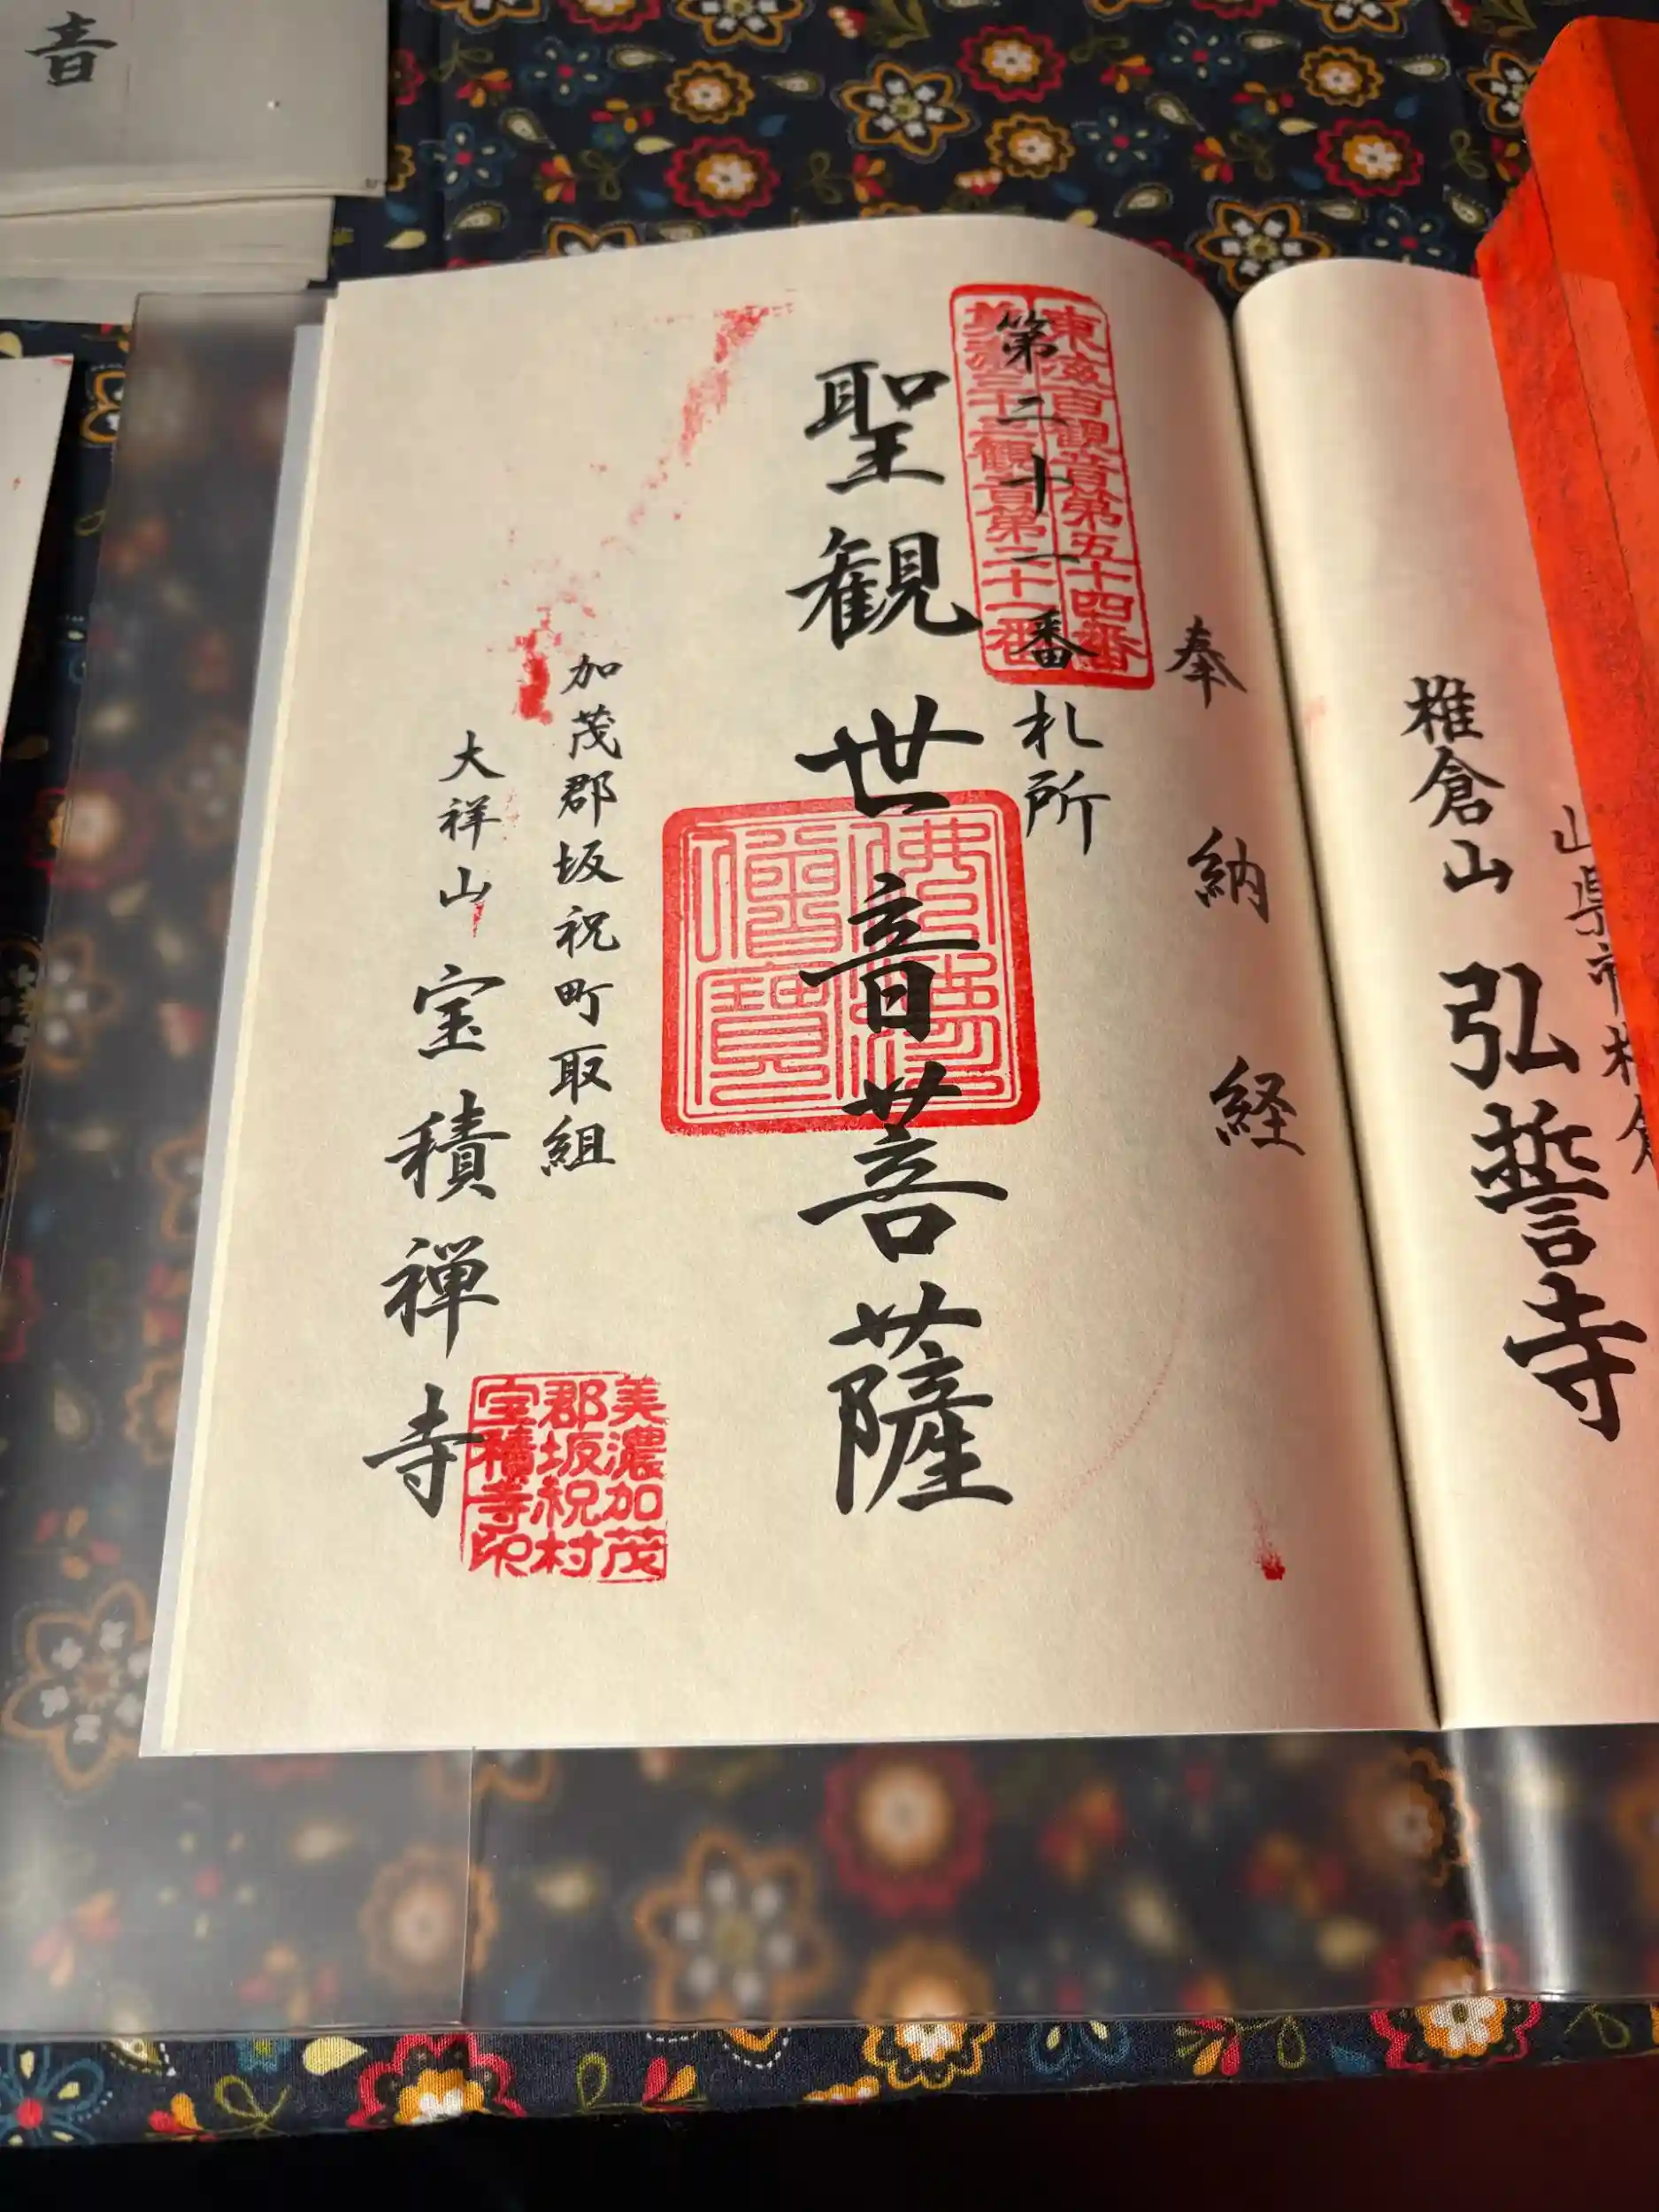 椎倉山 弘誓寺
奉納経
東海百観音第五十四番
美濃三十三観音第二十一番
第二十一番札所
聖観世音菩薩
佛法僧寶
加茂郡坂祝町取組
大祥山 宝積禅寺
美濃加茂
郡坂祝村
宝積寺印
音